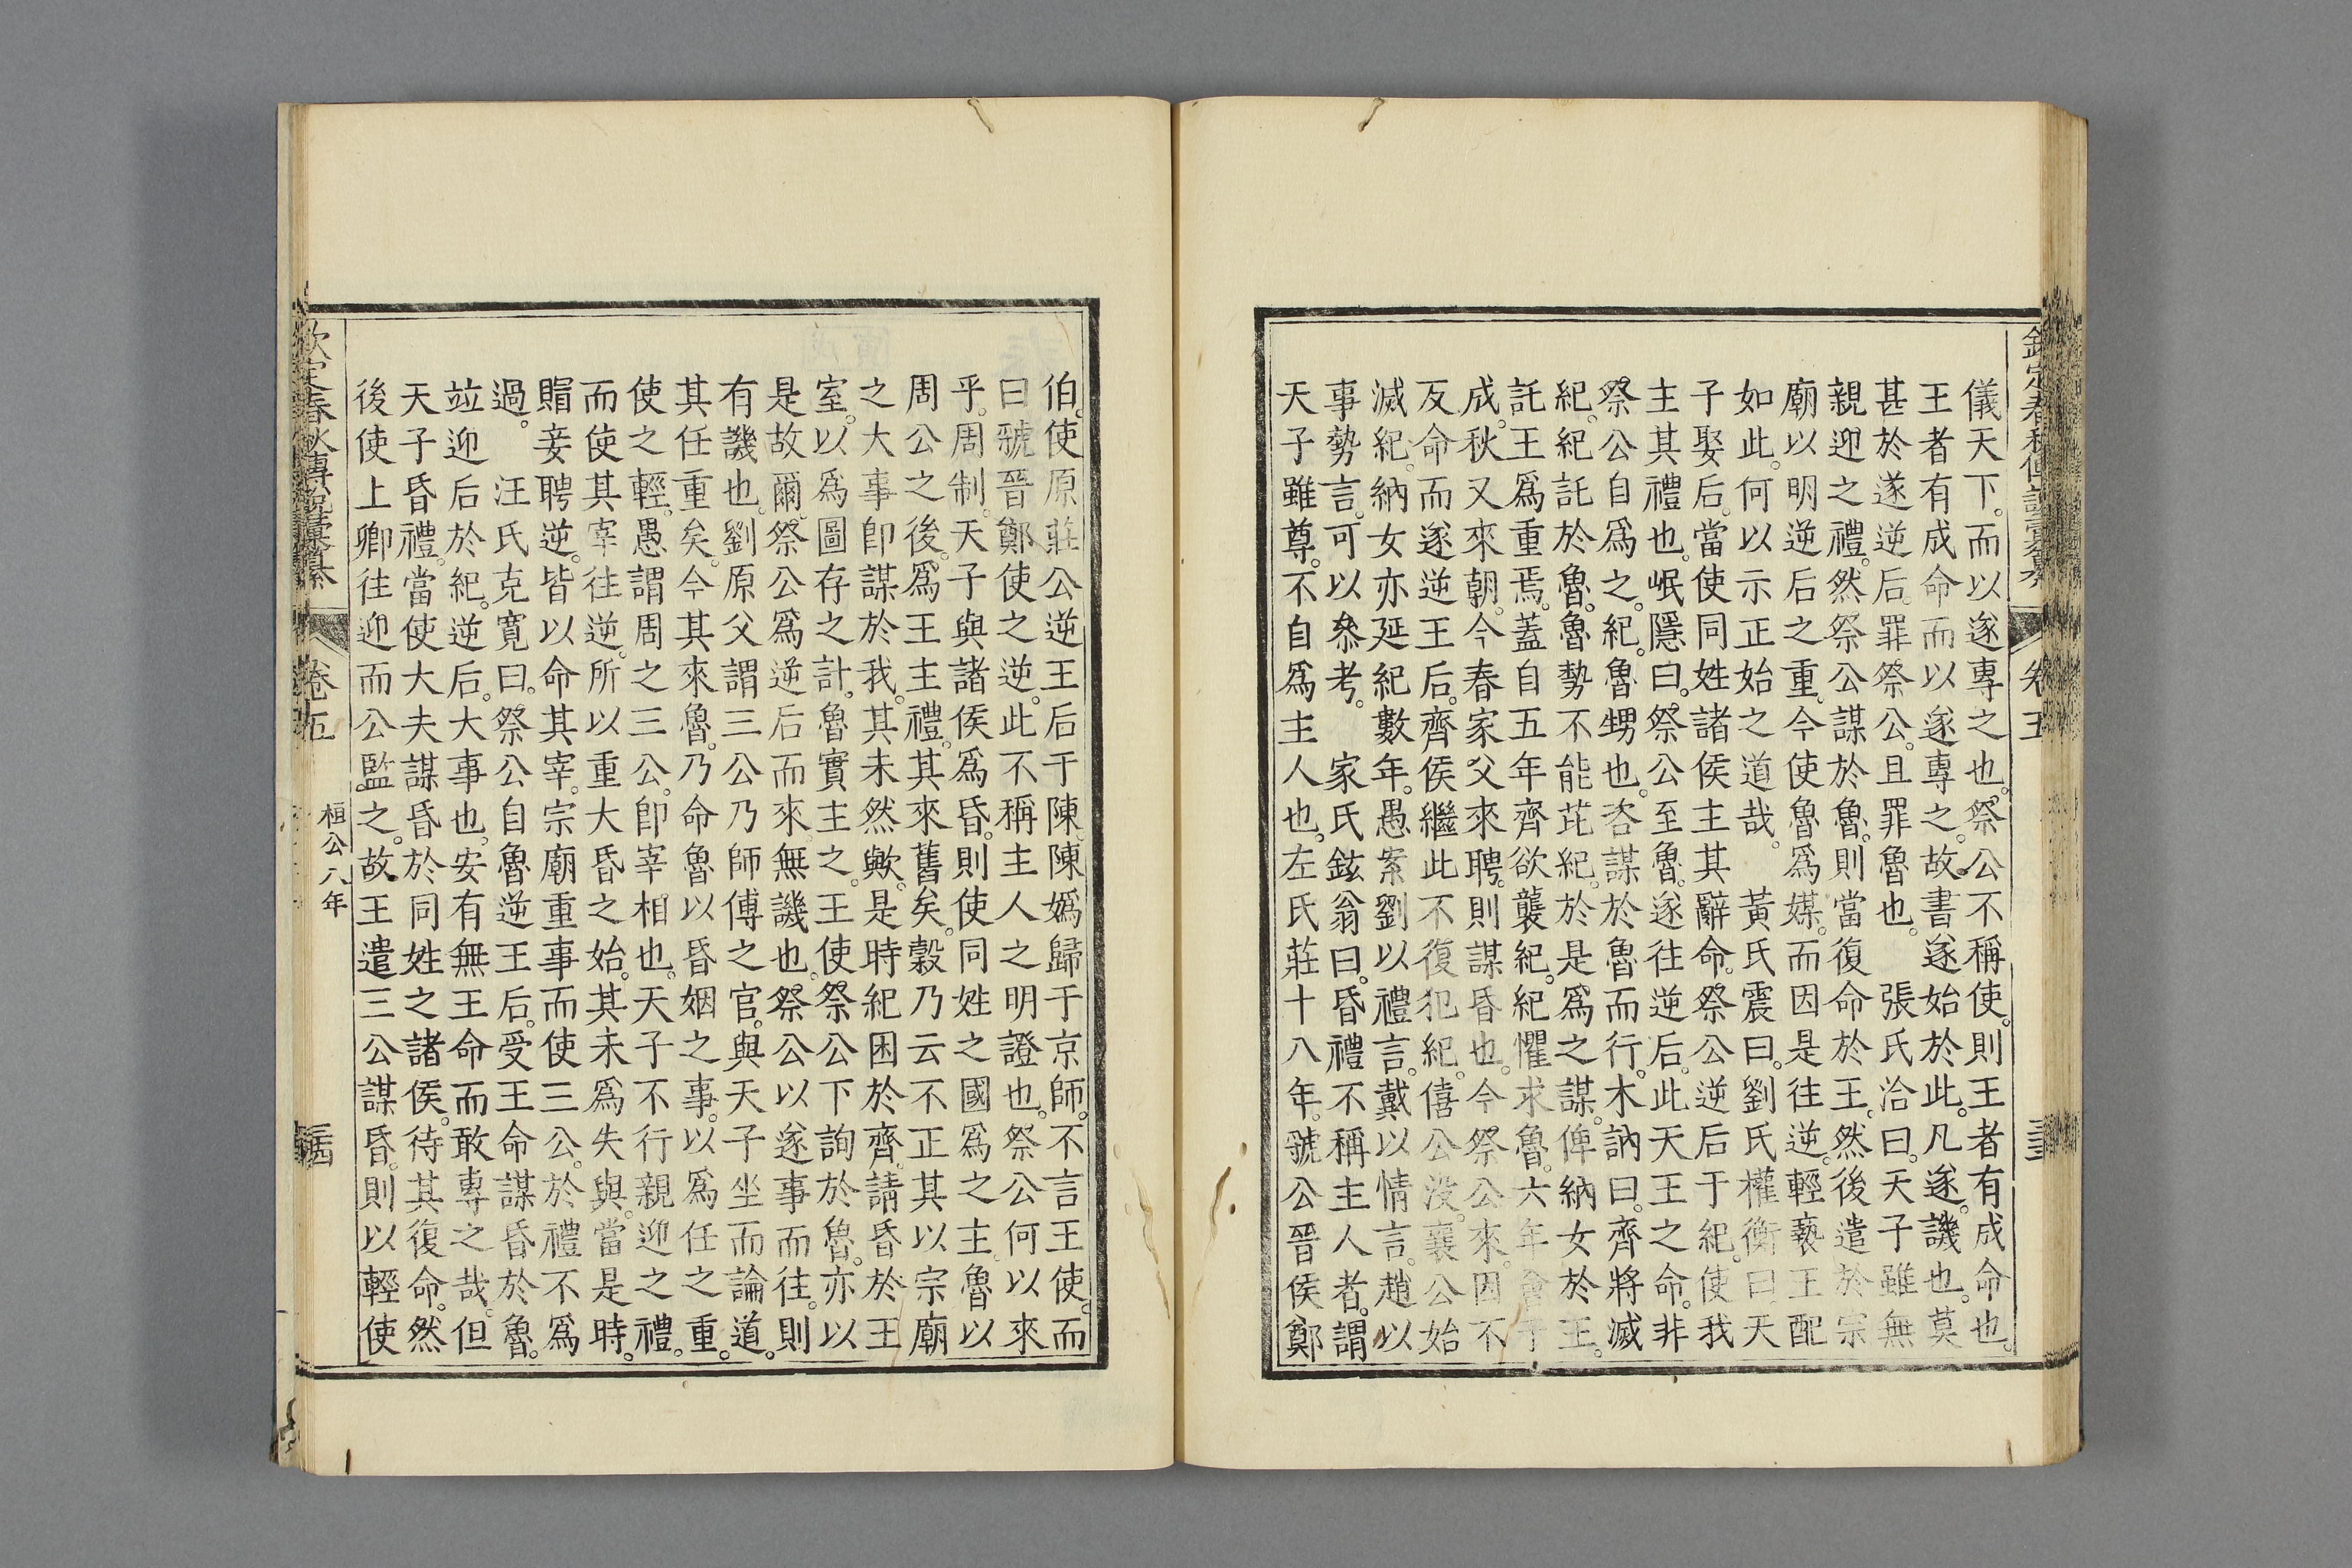 欽定春秋傳說彙纂 卷五
儀天下。而以遂專之也。祭公不稱使。則王者有成命也。
王者有成命而以遂專之。故書遂始於此。凡遂。譏也。莫
甚於遂逆后。罪祭公。且罪魯也。 張氏洽曰。天子雖無
親迎之禮。然祭公謀於魯。則當復命於王。然後遣於宗
廟以明逆后之重。今使魯爲媒。而因是往逆。輕褻王配
如此。何以示正始之道哉。 黃氏震曰。劉氏權衡曰。天
子娶后。當使同姓諸侯主其辭命。祭公逆后于紀。使我
主其禮也。岷隱曰。祭公至魯。遂往逆后。此天王之命。非
祭公自爲之。紀。魯甥也。咨謀於魯而行。木訥曰。齊將滅
紀。紀託於魯。魯勢不能芘紀。於是爲之謀。俾納女於王。
託王爲重焉。蓋自五年齊欲襲紀。紀懼求魯。六年會于
成。秋又來朝。今春家父來聘。則謀昏也。今祭公來。因不
反命而遂逆王后。齊侯繼此不復犯紀。僖公没。襄公始
滅紀。納女亦延紀數年。愚案劉以禮言。戴以情言。趙以
事勢言。可以叅考。 家氏鉉翁曰。昏禮不稱主人者。謂
天子雖尊。不自爲主人也。左氏莊十八年。虢公晉侯鄭
伯。使原莊公逆王后于陳。陳嬀歸于京師。不言王使。而
曰虢晉鄭使之逆。此不稱主人之明證也。祭公何以來
乎。周制。天子與諸侯爲昏。則使同姓之國爲之主。魯以
周公之後。爲王主禮。其來舊矣。榖乃云不正其以宗廟
之大事卽謀於我。其未然歟。是時紀困於齊。請昏於王
室。以爲圖存之計。魯實主之。王使祭公下詢於魯。亦以
是故爾。祭公爲逆后而來。無譏也。祭公以遂事而往。則
有譏也。劉原父謂三公乃師傅之官。與天子坐而論道。
其任重矣。今其來魯。乃命魯以昏姻之事。以爲任之重。
使之輕。愚謂周之三公。卽宰相也。天子不行親迎之禮。
而使其宰往逆。所以重大昏之始。其未爲失與。當是時。
賵妾聘逆。皆以命其宰。宗廟重事而使三公。於禮不爲
過。 汪氏克寬曰。祭公自魯逆王后。受王命謀昏於魯。
竝迎后於紀。逆后。大事也。安有無王命而敢專之哉。但
天子昏禮。當使大夫謀昏於同姓之諸侯。待其復命。然
後使上卿往迎而公監之。故王遣三公謀昏。則以輕使
欽定春秋傳說彙纂 卷五 桓公八年